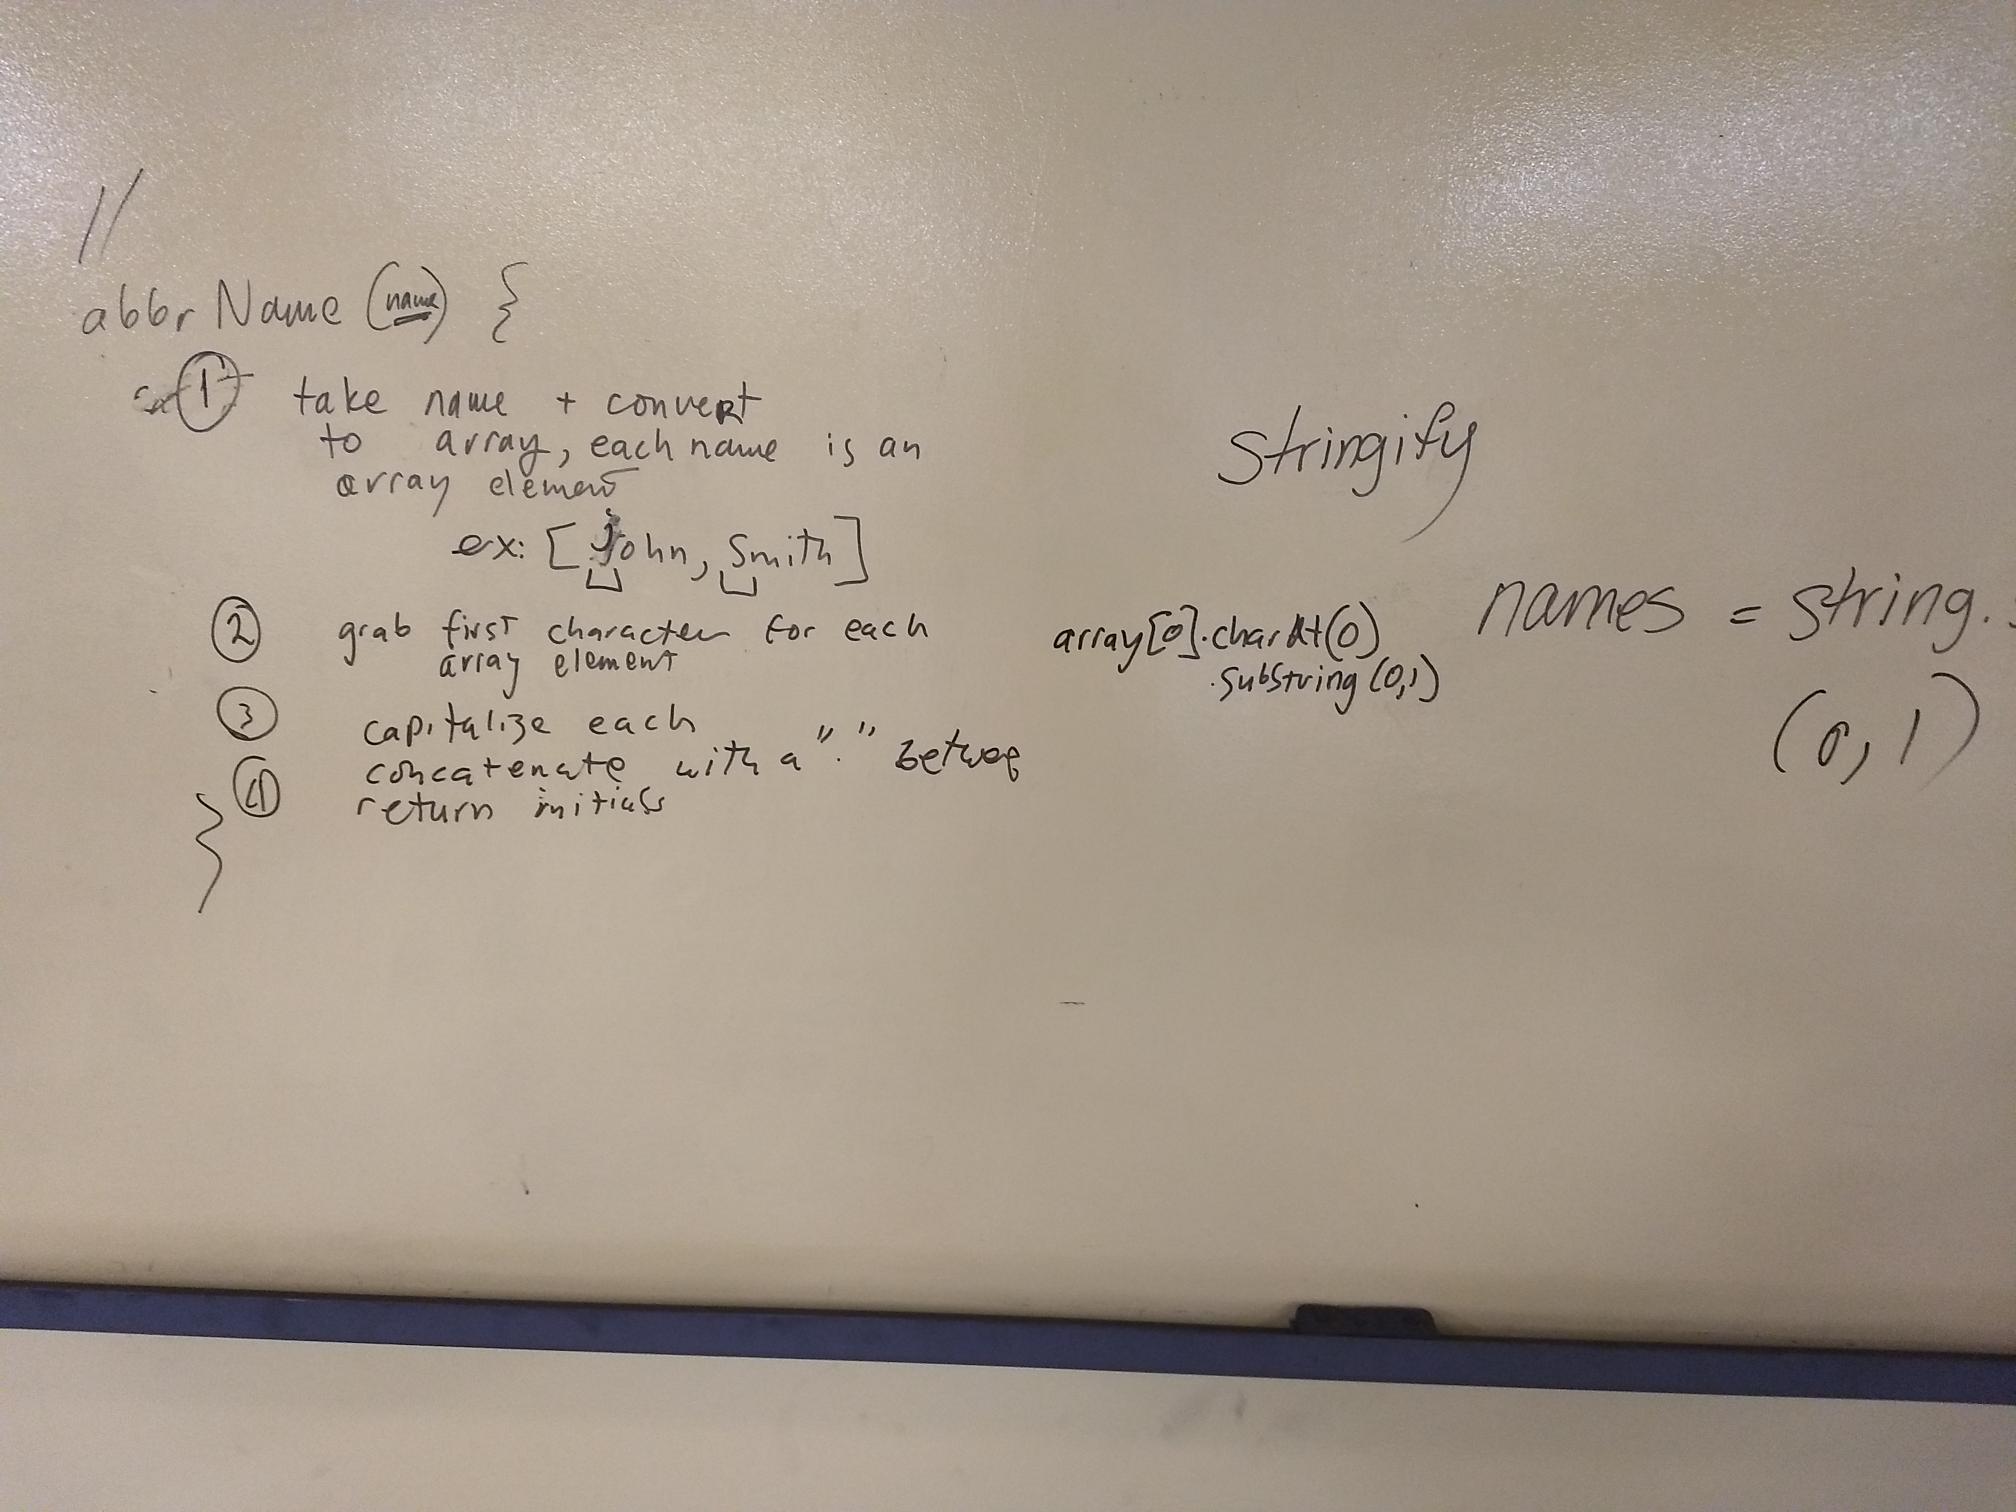 //
abbrName (name) {
1 take name + convert
to array, each name is an
array element
ex: [John, Smith]
2 grab first character for each
array element
3 capitalize each
concatenate with a "." betwee
4 return initials
}
array[0].charAt(0)
.substring(0,1)
Stringify
names = string.
(0,1)